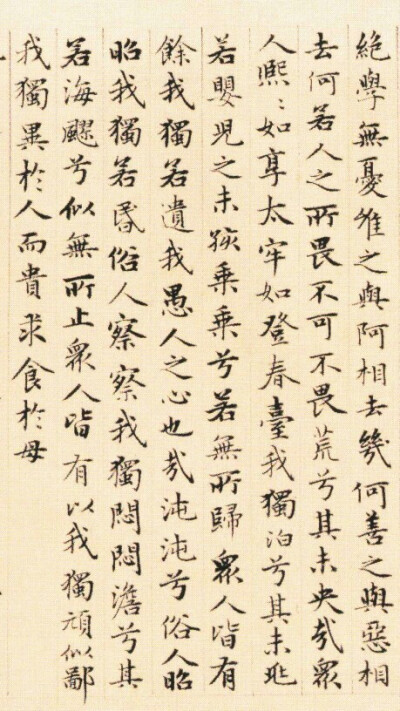 絕學無憂唯之與阿相去幾何善之與惡相
去何若人之所畏不可不畏荒兮其未央哉眾
人熙〻如享太牢如登春臺我獨泊兮其未兆
若嬰兒之未孩乘乘兮若無所歸眾人皆有
餘我獨若遺我愚人之心也哉沌沌兮俗人昭
昭我獨若昏俗人察察我獨悶悶澹兮其
若海飂兮似無所止眾人皆有以我獨頑似鄙
我獨異於人而貴求食於母